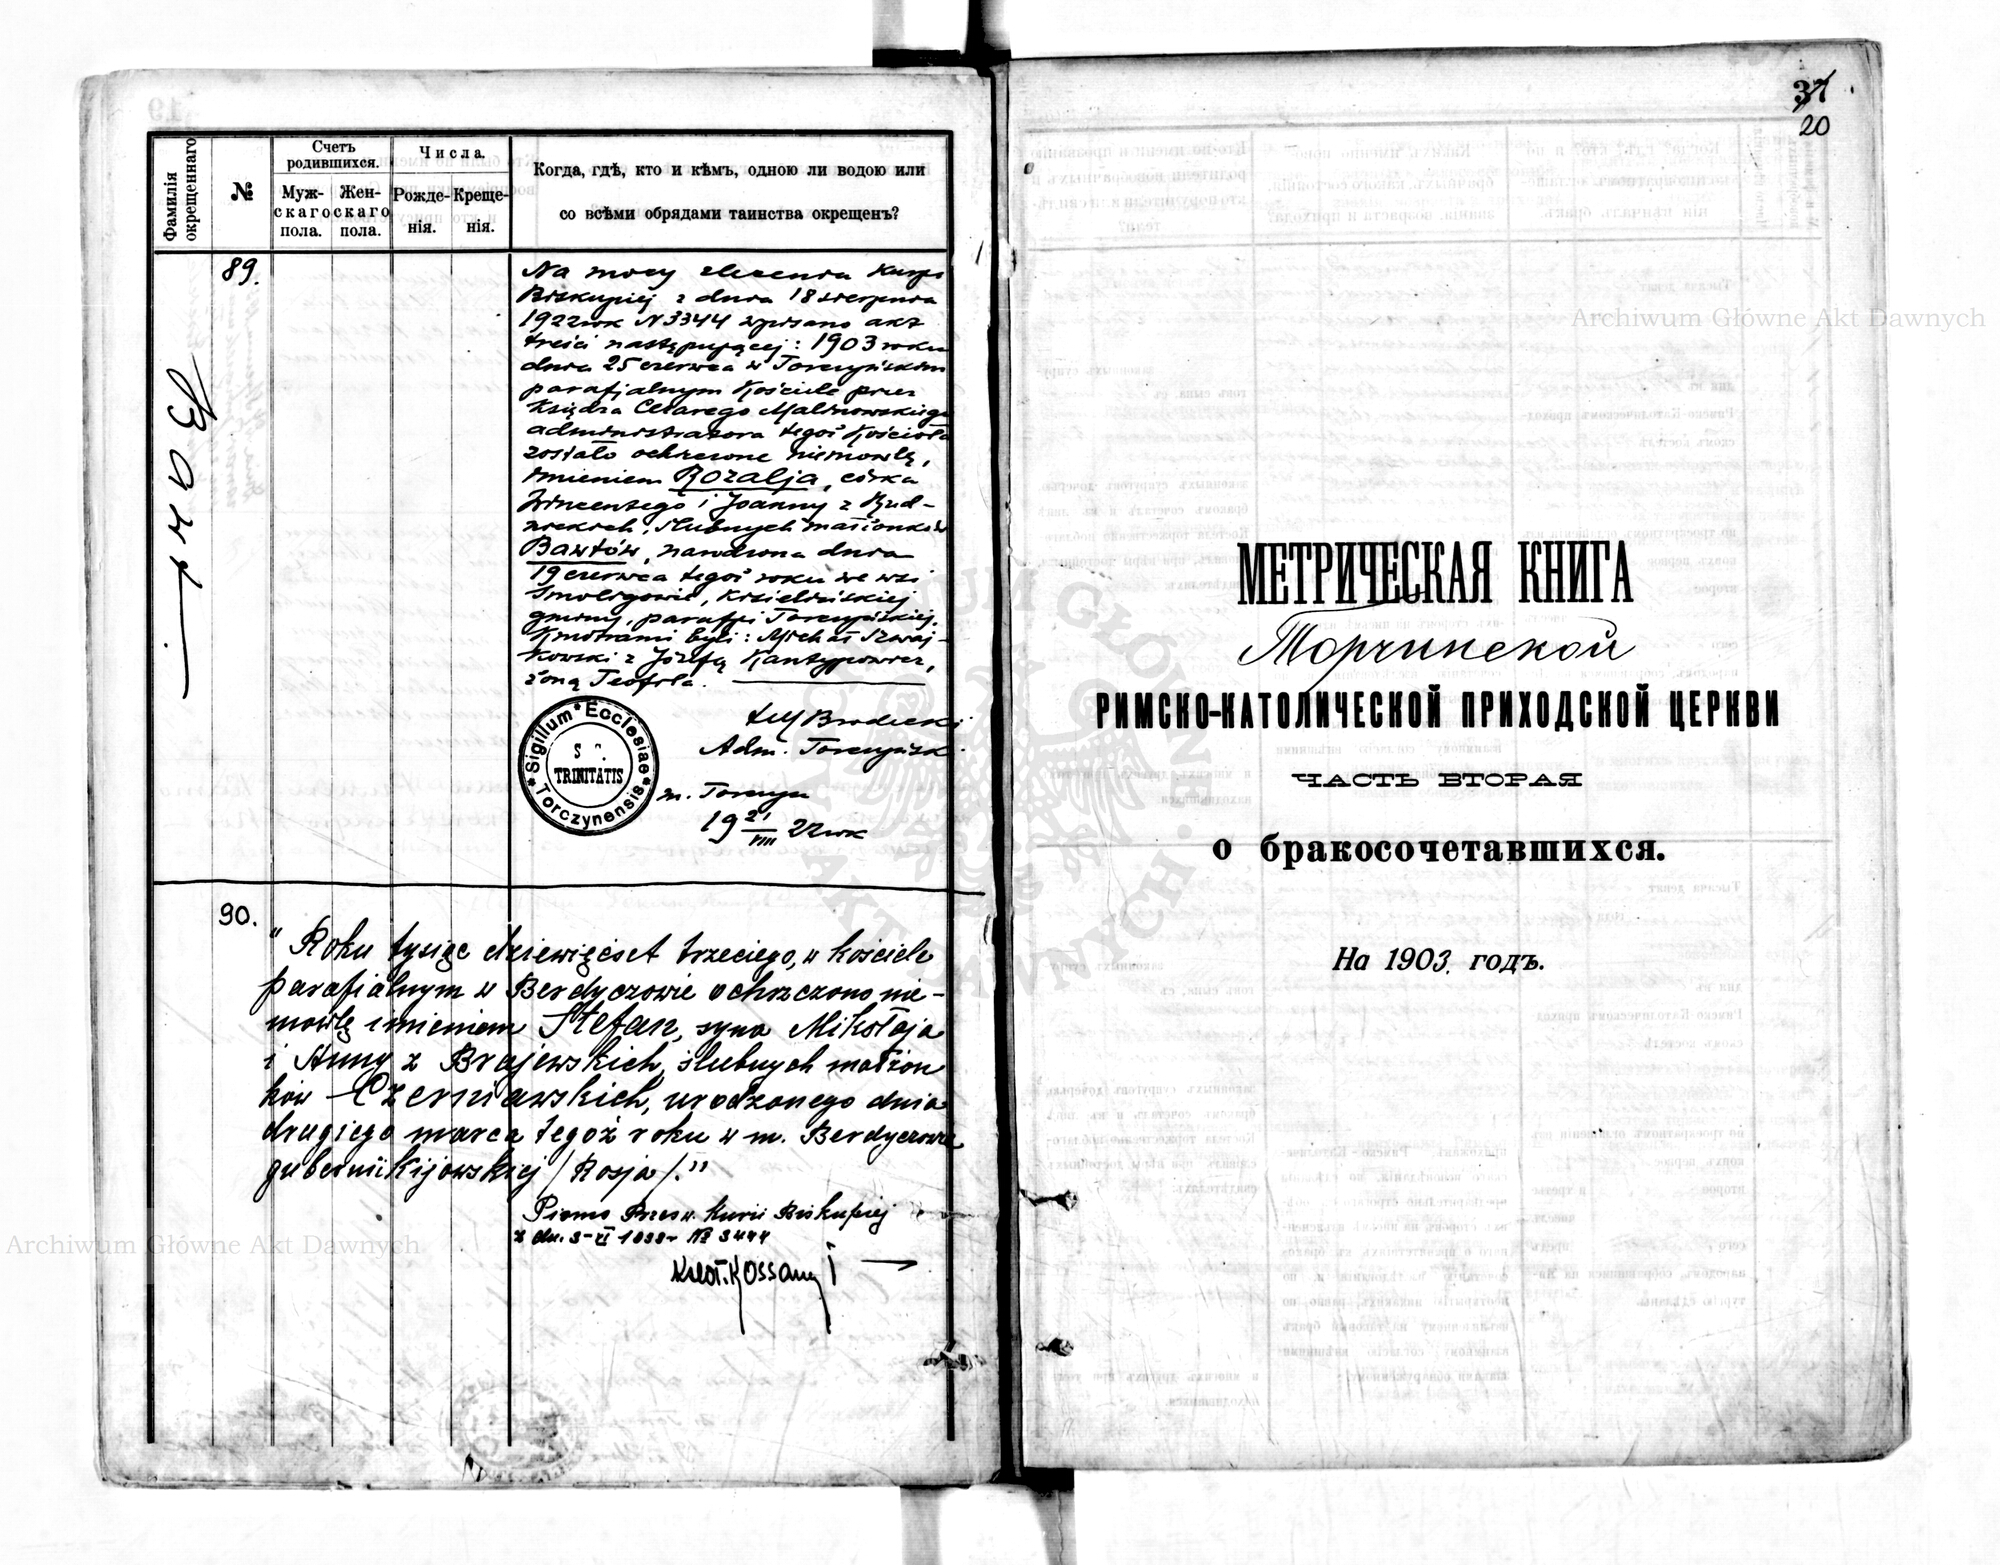 Фамилія окрещеннаго
№
Счетъ родившихся.
Муж-
скаго
пола.
Жен-
скаго
пола.
Числа.
Рожде-
нія.
Креще-
нія.
Когда, гдѣ, кто и кѣмъ, одною ли водою или
со всѣми обрядами таинства окрещенъ?
89.
Na mocy zlecenia Kurji
Biskupiej z dnia 18 sierpnia
1922 rok N 3344 wpisano akt
treści następującej: 1903 roku
dnia 25 czerwca w Torczyńskim
parafjalnym Kościele przez
Księdza Cezarego Malinowskiego
administratora tegoż Kościoła
zostało ochrzczone niemowlę,
imieniem Rozalja, córka
Wincentego i Joanny z Rud-
nickich, ślubnych małżonków
Bawtów, narodzona dnia
19 czerwca tegoż roku we wsi
Smoligowie, Kisielińskiej
gminy, parafji Torczyńskiej.
Kmotrami byli: Michał Szwaj-
kowski z Józefą Kantypowicz,
żoną Teofila.
Adm. Torczyńsk.
m. Torczyn
19 21/VIII 22 rok
Sigillum Ecclesiae
S
TRINITATIS
Torczynensis
90.
"Roku tysiąc dziewięćset trzeciego, w kościele
parafialnym w Berdyczowie ochrzczono nie-
mowlę imieniem Stefan, syna Mikołaja
i Anny z Brajewskich, ślubnych małżon
ków Czerniawskich, urodzonego dnia
drugiego marca tegoż roku w m. Berdyczowie
gubernii Kijowskiej /Rosja/."
Pismo Przesw. Kurii Biskupiej
z dn. 3-VI 1938 r № 3444
37
20
МЕТРИЧЕСКАЯ КНИГА
Торчинской
РИМСКО-КАТОЛИЧЕСКОЙ ПРИХОДСКОЙ ЦЕРКВИ
ЧАСТЬ ВТОРАЯ
о бракосочетавшихся.
На 1903. годъ.
Archiwum Główne Akt Dawnych
Archiwum Główne Akt Dawnych
ARCHIWUM GŁÓWNE AKT DAWNYCH